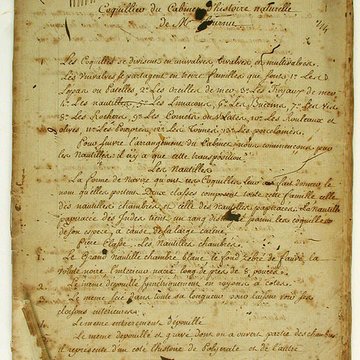 Coquillier du Cabinet d'histoire naturelle
de Mr
Les Coquilles se divisent en univalves, bivalves et multivalves.
Les Univalves se partagent en treize familles que sont 1° Les
Lepas ou Patelles 2° Les oreilles de mer 3° Les Tuyaux de mer
4° Les nautilles, 5° Les Limaçons 6° Les 7° Les Vis
8° Les Rochers 9° Les Cornets 10° Les Rouleaux et
olives, 11° Les 12° Les Tonnes, 13° Les porcelaines.
Pour suivre l'arrangement du Cabinet nous commencerons par
les Nautilles il n'y a que cette transposition
Les Nautilles
La forme de Navire qu'ont ces Coquilles leur a fait donner le
nom qu'elles portent. Deux classes composent toute cette famille celle
des nautilles chambrés et celle des nautilles papiracés. Le nautille
papiracé des Indes tient un rang parmi les coquilles
de son espece, à cause de sa large carène.
1ere Classe. Les Nautilles chambrés.
1. Le Grand nautille chambré blanc le fond robe de fauve, la
volute noire, l'interieur nacré, long de près de 8 pouces.
2. Le même dépouillé simetriquement en rayons à cotes.
Le même scié dans toute sa longueur pour laisser voir ses
cloisons interieures.
Le même entierement dépouillé.
Le même dépouillé et gravé dont on a ouvert partie des chambres
il represente d'un coté l'histoire de et de l'autre